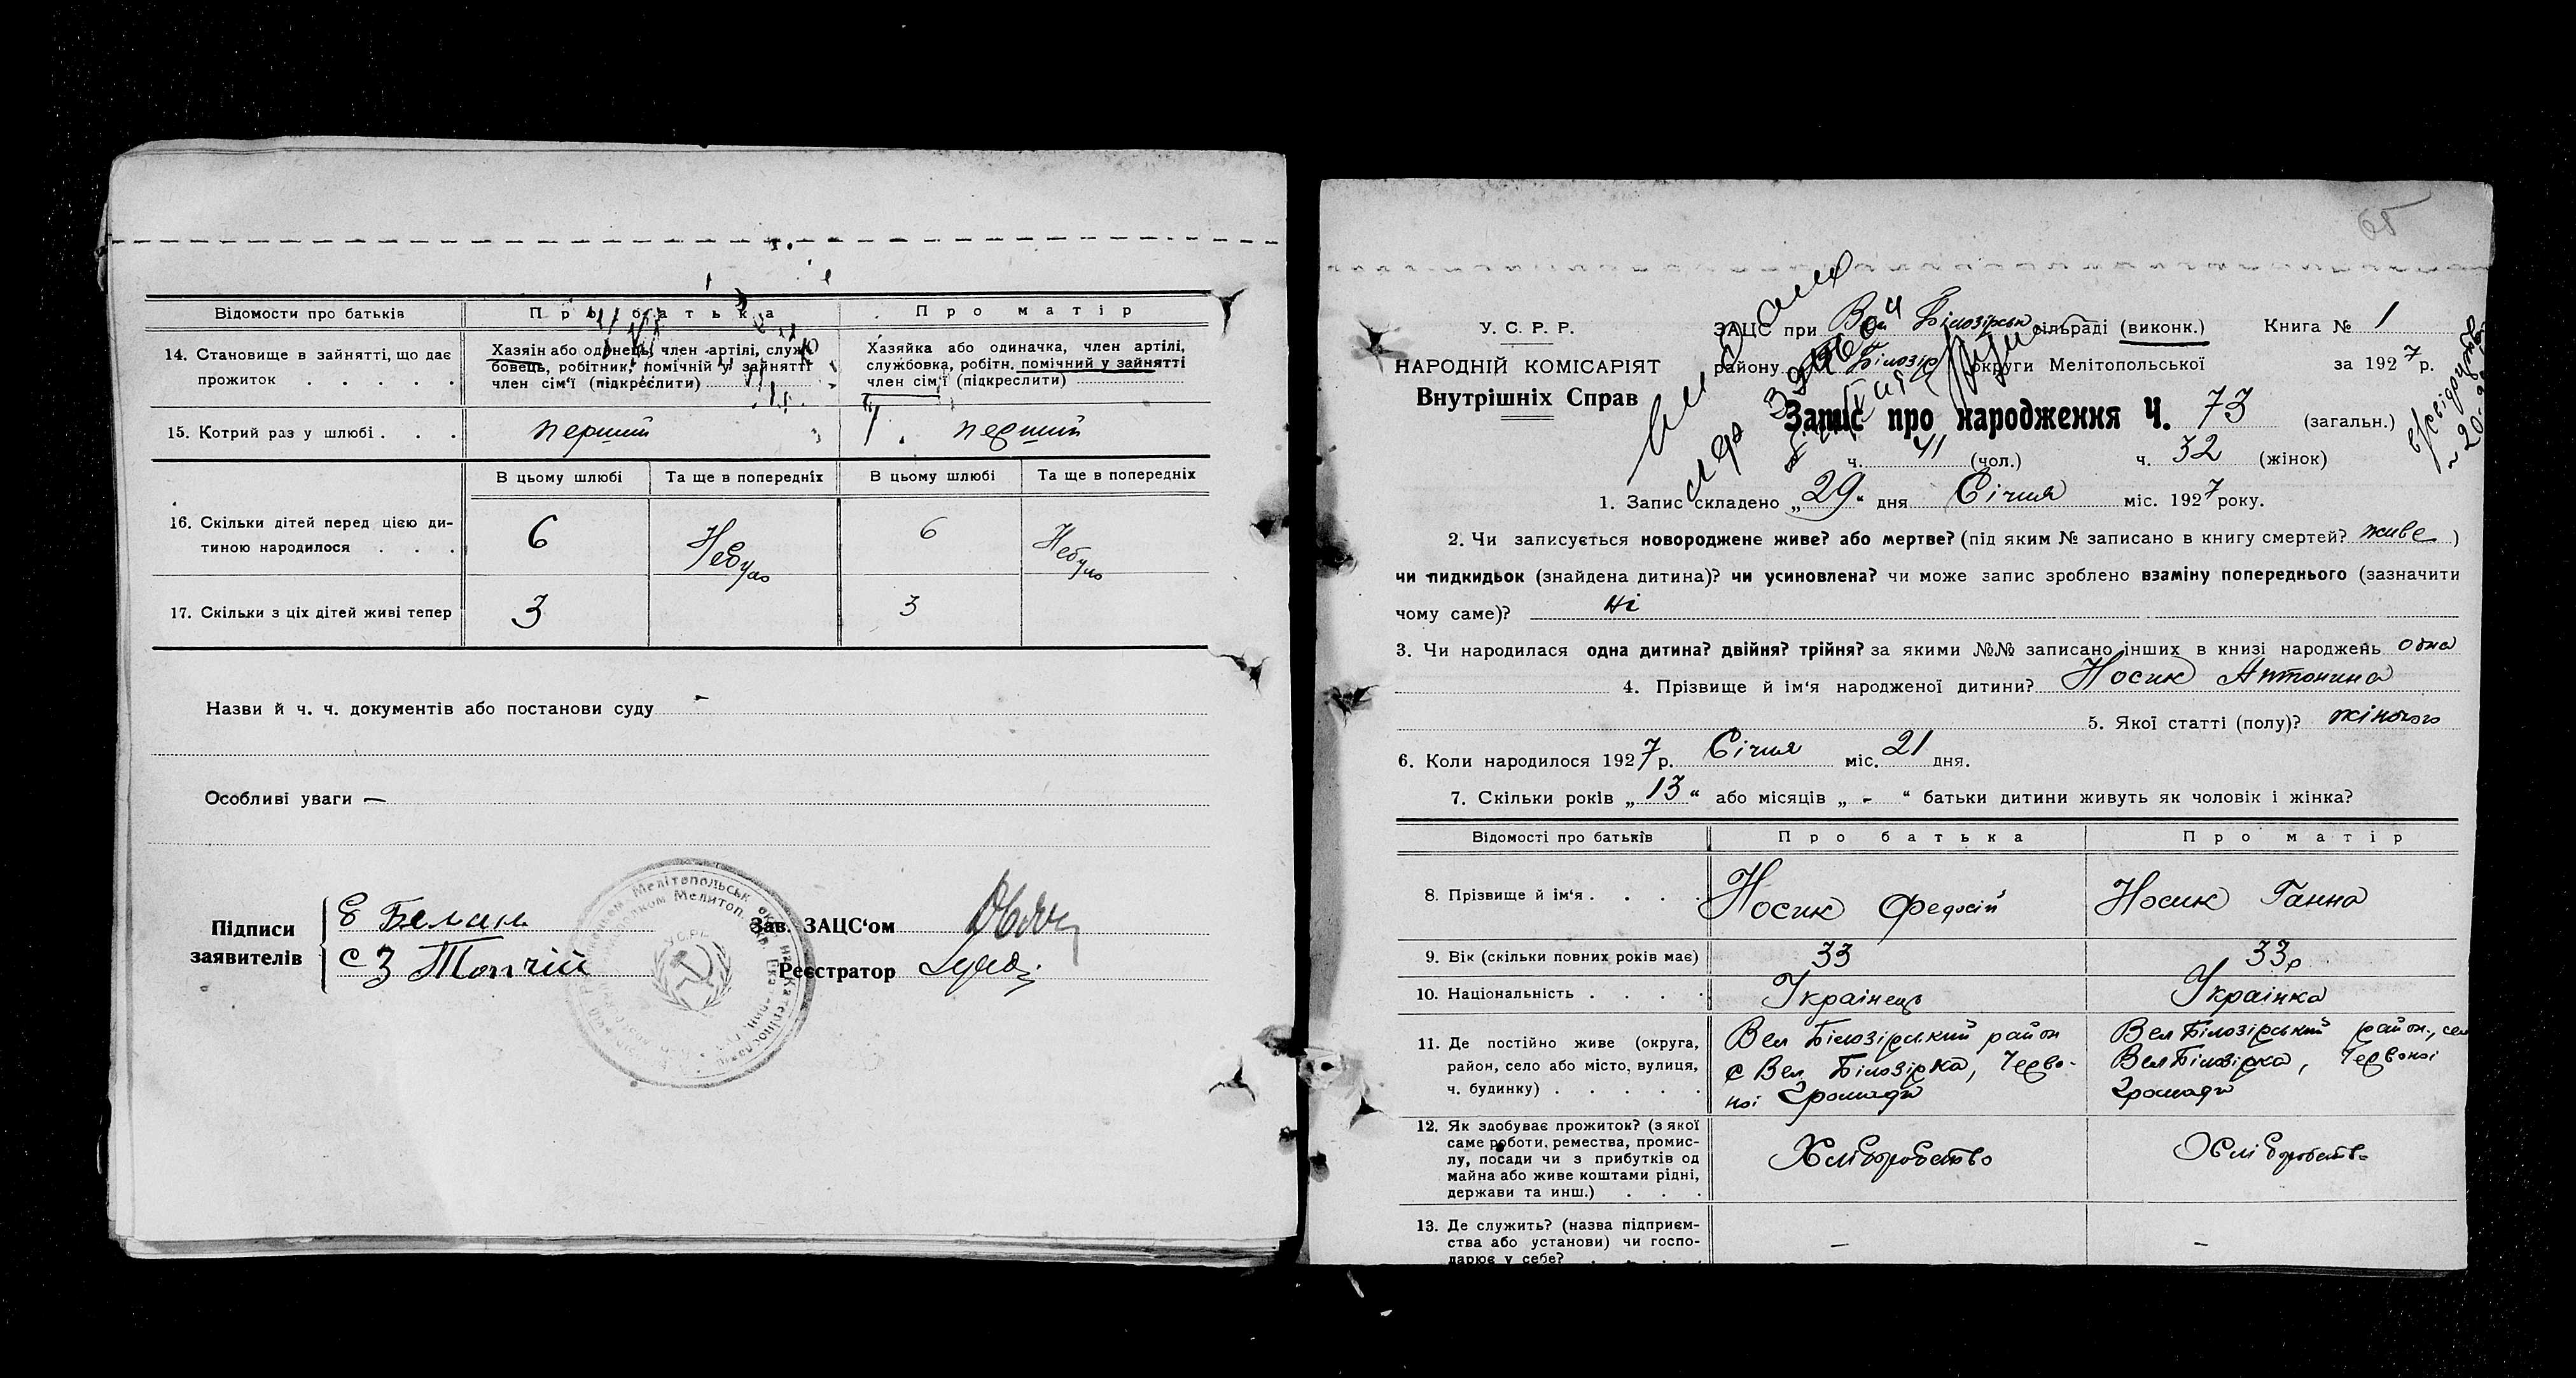 Відомости про батьків
Про батька
Про матір
14. Становище в зайнятті, що дає
прожиток . . . . .
Хазяін або одинець, член артілі, служ-
бовець, робітник, помічній у зайнятті
член сім'ї (підкреслити)
Хазяйка або одиначка, член артілі,
службовка, робітн. помічний у зайнятті
член сім'ї (підкреслити)
15. Котрий раз у шлюбі . . .
перший
перший
В цьому шлюбі
Та ще в попередніх
В цьому шлюбі
Та ще в попередніх
16. Скільки дітей перед цією ди-
тиною народилося . . .
6
Небуло
6
Небуло
17. Скільки з ціх дітей живі тепер
3
3
Назви й ч. ч. документів або постанови суду -
Особливі уваги —
Підписи
заявителів
Зав. ЗАЦС'ом
Реєстратор
65
У. С. Р. Р.
НАРОДНІЙ КОМІСАРІЯТ
Внутрішніх Справ
ЗАЦС при Вел Білозірськ сільраді (виконк.)
Книга № 1
району В Білозір округи Мелітопольської
за 1927 р.
Запіс про народження Ч. 73 (загальн.)
ч. 41 (чол.) ч. 32 (жінок)
1. Запис складено „29“ дня Січня міс. 1927 року.
2. Чи записується новороджене живе? або мертве? (під яким № записано в книгу смертей? живе )
чи пидкидьок (знайдена дитина)? чи усиновлена? чи може запис зроблено взаміну попереднього (зазначити
чому саме)? ні
3. Чи народилася одна дитина? двійня? трійня? за якими №№ записано інших в книзі народжень одна
4. Прізвище й ім'я народженої дитини? Носик Антонина
5. Якої статті (полу)? жіночого
6. Коли народилося 1927 р. Січня міс. 21 дня.
7. Скільки років „ 13 “ або місяців „ - “ батьки дитини живуть як чоловік і жінка?
Відомості про батьків
Про батька
Про матір
8. Прізвище й ім'я . . . .
Носик Федосій
Носик Ганна
9. Вік (скільки повних років має)
33
33р
10. Національність . . . .
Українець
Українка
11. Де постійно живе (округа,
район, село або місто, вулиця,
ч. будинку) . . . . .
Вел Білозірський район
с Вел Білозірка, Черво-
ної Громади
Вел Білозірський район, сел
Вел Білозірка, Червоної
Громади
12. Як здобуває прожиток? (з якої
саме роботи, ремества, промис-
лу, посади чи з прибутків од
майна або живе коштами рідні,
держави та инш.) . . .
Хліборобство
Хліборобство
13. Де служить? (назва підприєм-
ства або установи) чи госпо-
дарює у себе? . . . .
—
—